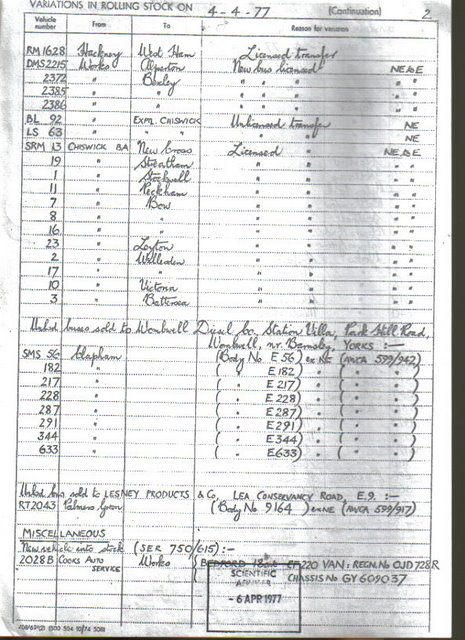 VARIATIONS IN ROLLING STOCK ON 4-4-77 (Continuation) 2
Vehicle number From To Reason for variation
RM 1628 Hackney West Ham Licensed transfer
DMS 2215 Works Alperton New bus licensed NE&E
2372 " Bexley " " " " "
2385 " " " " " " "
2386 " " " " " " "
BL 92 " EXPL. CHISWICK Unlicensed transfer NE
LS 63 " " " " " NE
SRM 13 CHISWICK BA New Cross Licensed " NE&E
19 " Streatham " " " "
1 " Stockwell " " " "
11 " Peckham " " " "
7 " Bow " " " "
8 " " " " " "
16 " " " " " "
23 " Leyton " " " "
2 " Willesden " " " "
17 " " " " " "
10 " Victoria " " " "
3 " Battersea " " " "
Unlicd buses sold to Wombwell Diesel Co, Station Villa, Park Hill Road,
Wombwell, nr. Barnsley, YORKS :—
SMS 56 Clapham (Body No E 56) ex NE (AWCA 599/942)
182 " ( " E 182) " ( " " )
217 " ( " E 217) " ( " " )
228 " ( " E 228) " ( " " )
287 " ( " E 287) " ( " " )
291 " ( " E 291) " ( " " )
344 " ( " E 344) " ( " " )
633 " ( " E 633) " ( " " )
Unlicd bus sold to LESNEY PRODUCTS & Co, LEA CONSERVANCY ROAD, E.9. :—
RT2043 Palmers Green (Body No 9164) ex NE (AWCA 599/917)
MISCELLANEOUS
New vehicle into stock (SER 750/615) :—
2028B COOKS AUTO SERVICE Works BEDFORD CF 220 VAN : REGN. No OJD 728R
CHASSIS No GY 609037
SCIENTIFIC
- 6 APR 1977